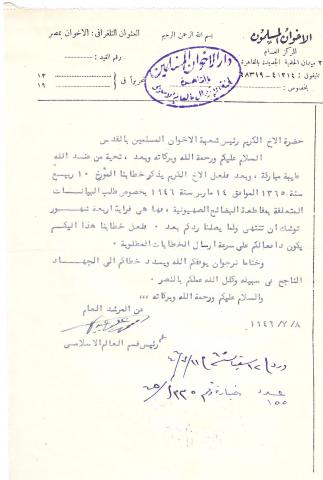 الاخوان المسلمون
المركز العام
بسم الله الرحمن الرحيم
العنوان التلغرافي: الاخوان بمصر
٢ ميدان الحلمية الجديدة بالقاهرة
رقم القيد:
دار الاخوان المسلمين
بالقاهرة
بخصوص:
تحريرا في
١٣
١٩
حضرة الاخ الكريم رئيس شعبة الاخوان المسلمين بالقدس
السلام عليكم ورحمة الله وبركاته وبعد ، تحية من عند الله
طيبة مباركة ، وبعد فلعل الاخ الكريم يذكر خطابنا المؤرخ ١٠ ربيع
سنة ١٣٦٥ الموافق ١٤ مارس سنة ١٩٤٦ بخصوص طلب البيانات
المتعلقة بمقاطعة البضائع الصهيونية ، فها هى قرابة اربعة شهور
توشك ان تنتهى ولما يصلنا ردكم بعد . فلعل خطابنا هذا اليكم
يكون دافعا لكم على سرعة ارسال الخطابات المطلوبة .
وختاما نرجو ان يوفقكم الله ويسدد خطاكم الى الجهاد
الناجح فى سبيله وكلل الله عملكم بالنصر .
والسلام عليكم ورحمة الله وبركاته ،،،
عن المرشد العام
١٩٤٦/٧/٨
رئيس قسم العالم الاسلامى
عدد
١٥٥